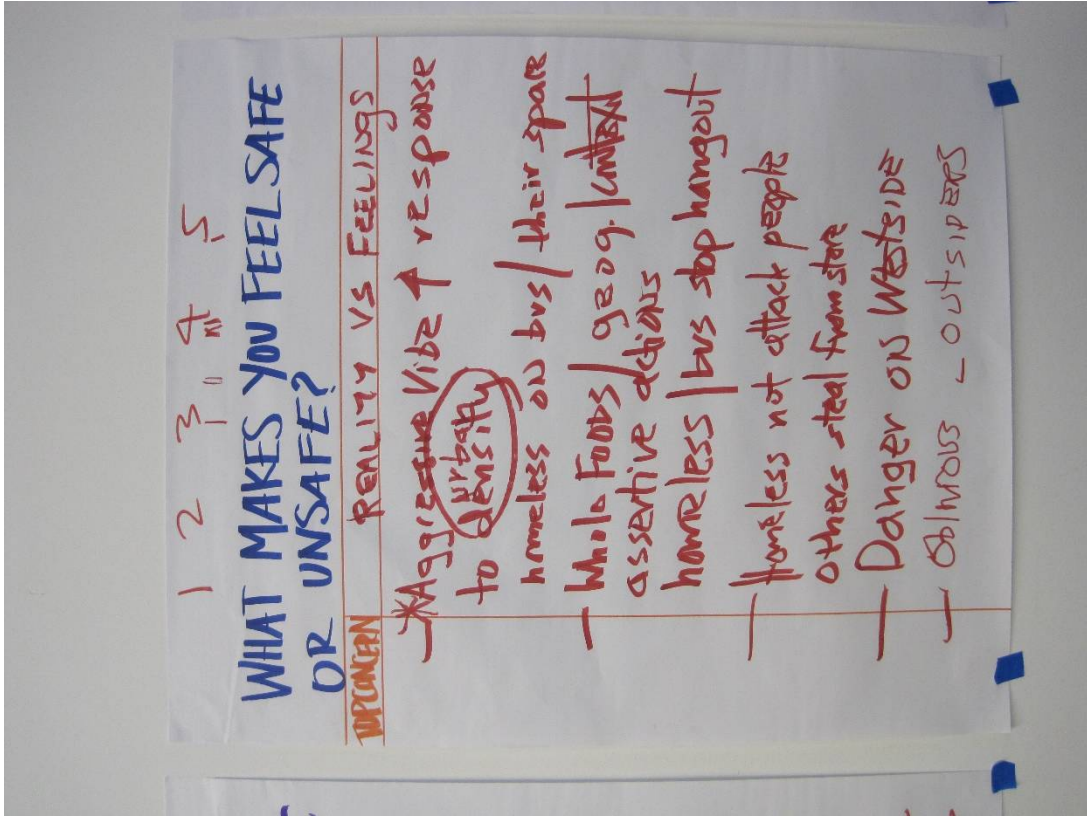 1 2 3 4 5
WHAT MAKES YOU FEEL SAFE
OR UNSAFE?
TOP CONCERN REALITY VS FEELINGS
— *Aggressive Vibe ↑ response
to urban density
homeless on bus / their space
— Whole Foods / geog. / context
assertive actions
homeless / bus stop hangout
— Homeless not attack people
others steal from store
— Danger ON WestSIDE
— OblNOUS - OUTSIDERS